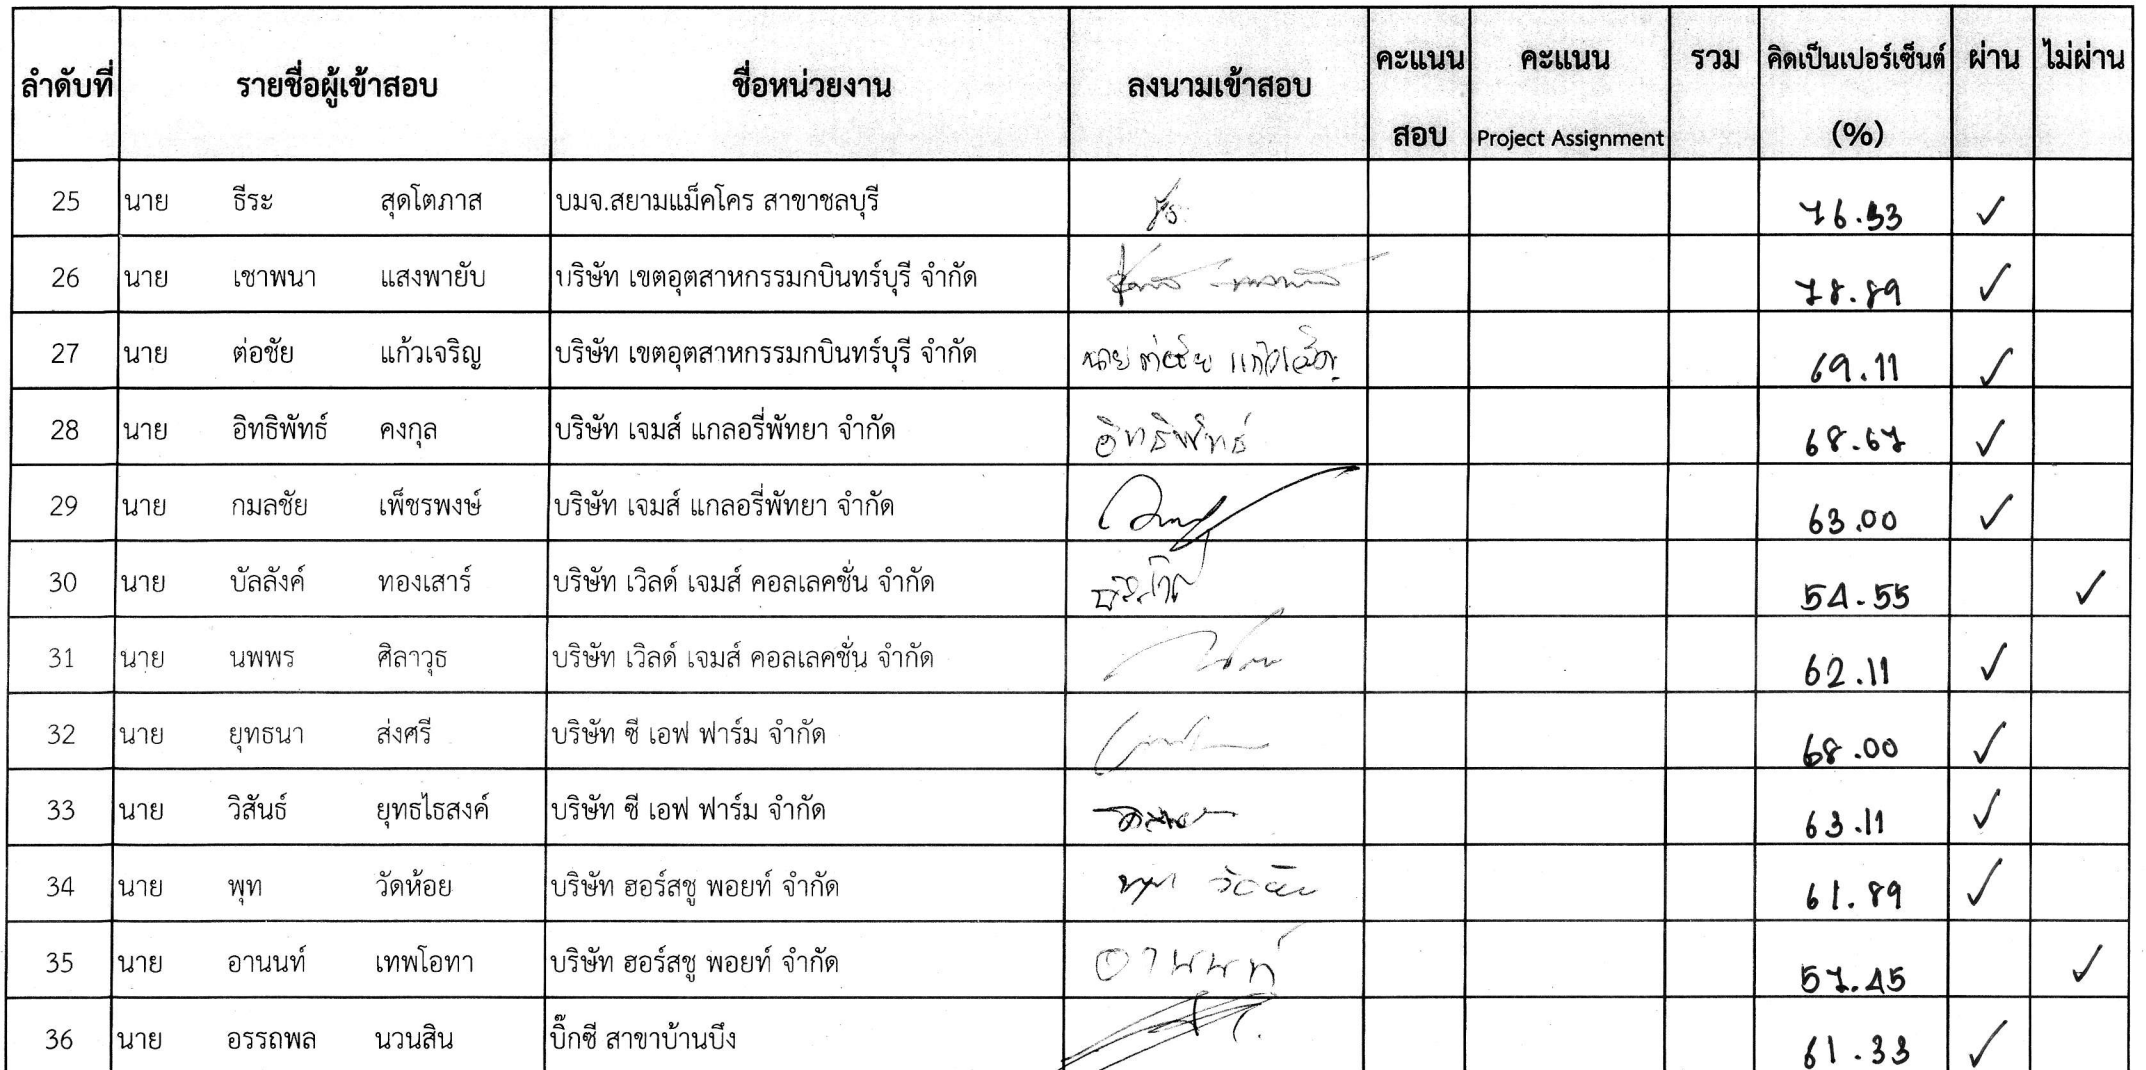 ลำดับที่ รายชื่อผู้เข้าสอบ ชื่อหน่วยงาน ลงนามเข้าสอบ คะแนน สอบ คะแนน Project Assignment รวม คิดเป็นเปอร์เซ็นต์ (%) ผ่าน ไม่ผ่าน
25 นาย ธีระ สุดโตภาส บมจ.สยามแม็คโคร สาขาชลบุรี 76.33 ✓
26 นาย เชาพนา แสงพายับ บริษัท เขตอุตสาหกรรมกบินทร์บุรี จำกัด 78.89 ✓
27 นาย ต่อชัย แก้วเจริญ บริษัท เขตอุตสาหกรรมกบินทร์บุรี จำกัด นายต่อชัย แก้วเจริญ 69.11 ✓
28 นาย อิทธิพัทธ์ คงกุล บริษัท เจมส์ แกลอรี่พัทยา จำกัด อิทธิพัทธ์ 68.67 ✓
29 นาย กมลชัย เพ็ชรพงษ์ บริษัท เจมส์ แกลอรี่พัทยา จำกัด 63.00 ✓
30 นาย บัลลังค์ ทองเสาร์ บริษัท เวิลด์ เจมส์ คอลเลคชั่น จำกัด 54.55 ✓
31 นาย นพพร ศิลาวุธ บริษัท เวิลด์ เจมส์ คอลเลคชั่น จำกัด 62.11 ✓
32 นาย ยุทธนา ส่งศรี บริษัท ซี เอฟ ฟาร์ม จำกัด 68.00 ✓
33 นาย วิสันธ์ ยุทธไธสงค์ บริษัท ซี เอฟ ฟาร์ม จำกัด 63.11 ✓
34 นาย พุท วัดห้อย บริษัท ฮอร์สชู พอยท์ จำกัด 61.89 ✓
35 นาย อานนท์ เทพโอทา บริษัท ฮอร์สชู พอยท์ จำกัด อานนท์ 57.45 ✓
36 นาย อรรถพล นวนสิน บิ๊กซี สาขาบ้านบึง 61.33 ✓